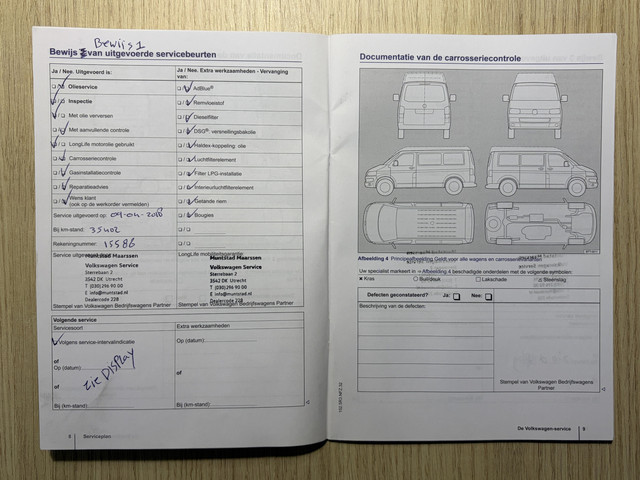 Bewijs 1
Bewijs van uitgevoerde servicebeurten
Ja / Nee. Uitgevoerd is:
Ja / Nee. Extra werkzaamheden - Vervanging van:
Olieservice
AdBlue®
Inspectie
Remvloeistof
Met olie verversen
Dieselfilter
Met aanvullende controle
DSG®- versnellingsbakolie
LongLife motorolie gebruikt
Haldex-koppeling olie
Carrosseriecontrole
Luchtfilterelement
Gasinstallatiecontrole
Filter LPG-installatie
Reparatieadvies
Interieurluchtfilterelement
Wens klant
(ook op de werkorder vermelden)
Getande riem
Service uitgevoerd op: 09-04-2018
Bougies
Bij km-stand: 35402
Rekeningnummer: 15586
Service uitgevoerd door:
LongLife mobiliteitsgarantie:
Muntstad Maarssen
Volkswagen Service
Sterrebaan 2
3542 DK Utrecht
T (030)296 90 00
E info@muntstad.nl
Dealercode 228
Stempel van Volkswagen Bedrijfswagens Partner
Muntstad Maarssen
Volkswagen Service
Sterrebaan 2
3542 DK Utrecht
T (030)296 90 00
E info@muntstad.nl
Dealercode 228
Stempel van Volkswagen Bedrijfswagens Partner
Volgende service
Servicesoort
Extra werkzaamheden
Volgens service-intervalindicatie
Op (datum):
of
Op (datum):
of
zie DISPLAY
of
Bij (km-stand):
Bij (km-stand):
8 Serviceplan
Documentatie van de carrosseriecontrole
Afbeelding 4 Principeafbeelding Geldt voor alle wagens en carrosserievarianten
Uw specialist markeert in → Afbeelding 4 beschadigde onderdelen met de volgende symbolen:
Kras
Buil/deuk
Lakschade
Steenslag
Defecten geconstateerd? Ja: Nee:
Beschrijving van de defecten:
Stempel van Volkswagen Bedrijfswagens
Partner
De Volkswagen-service 9